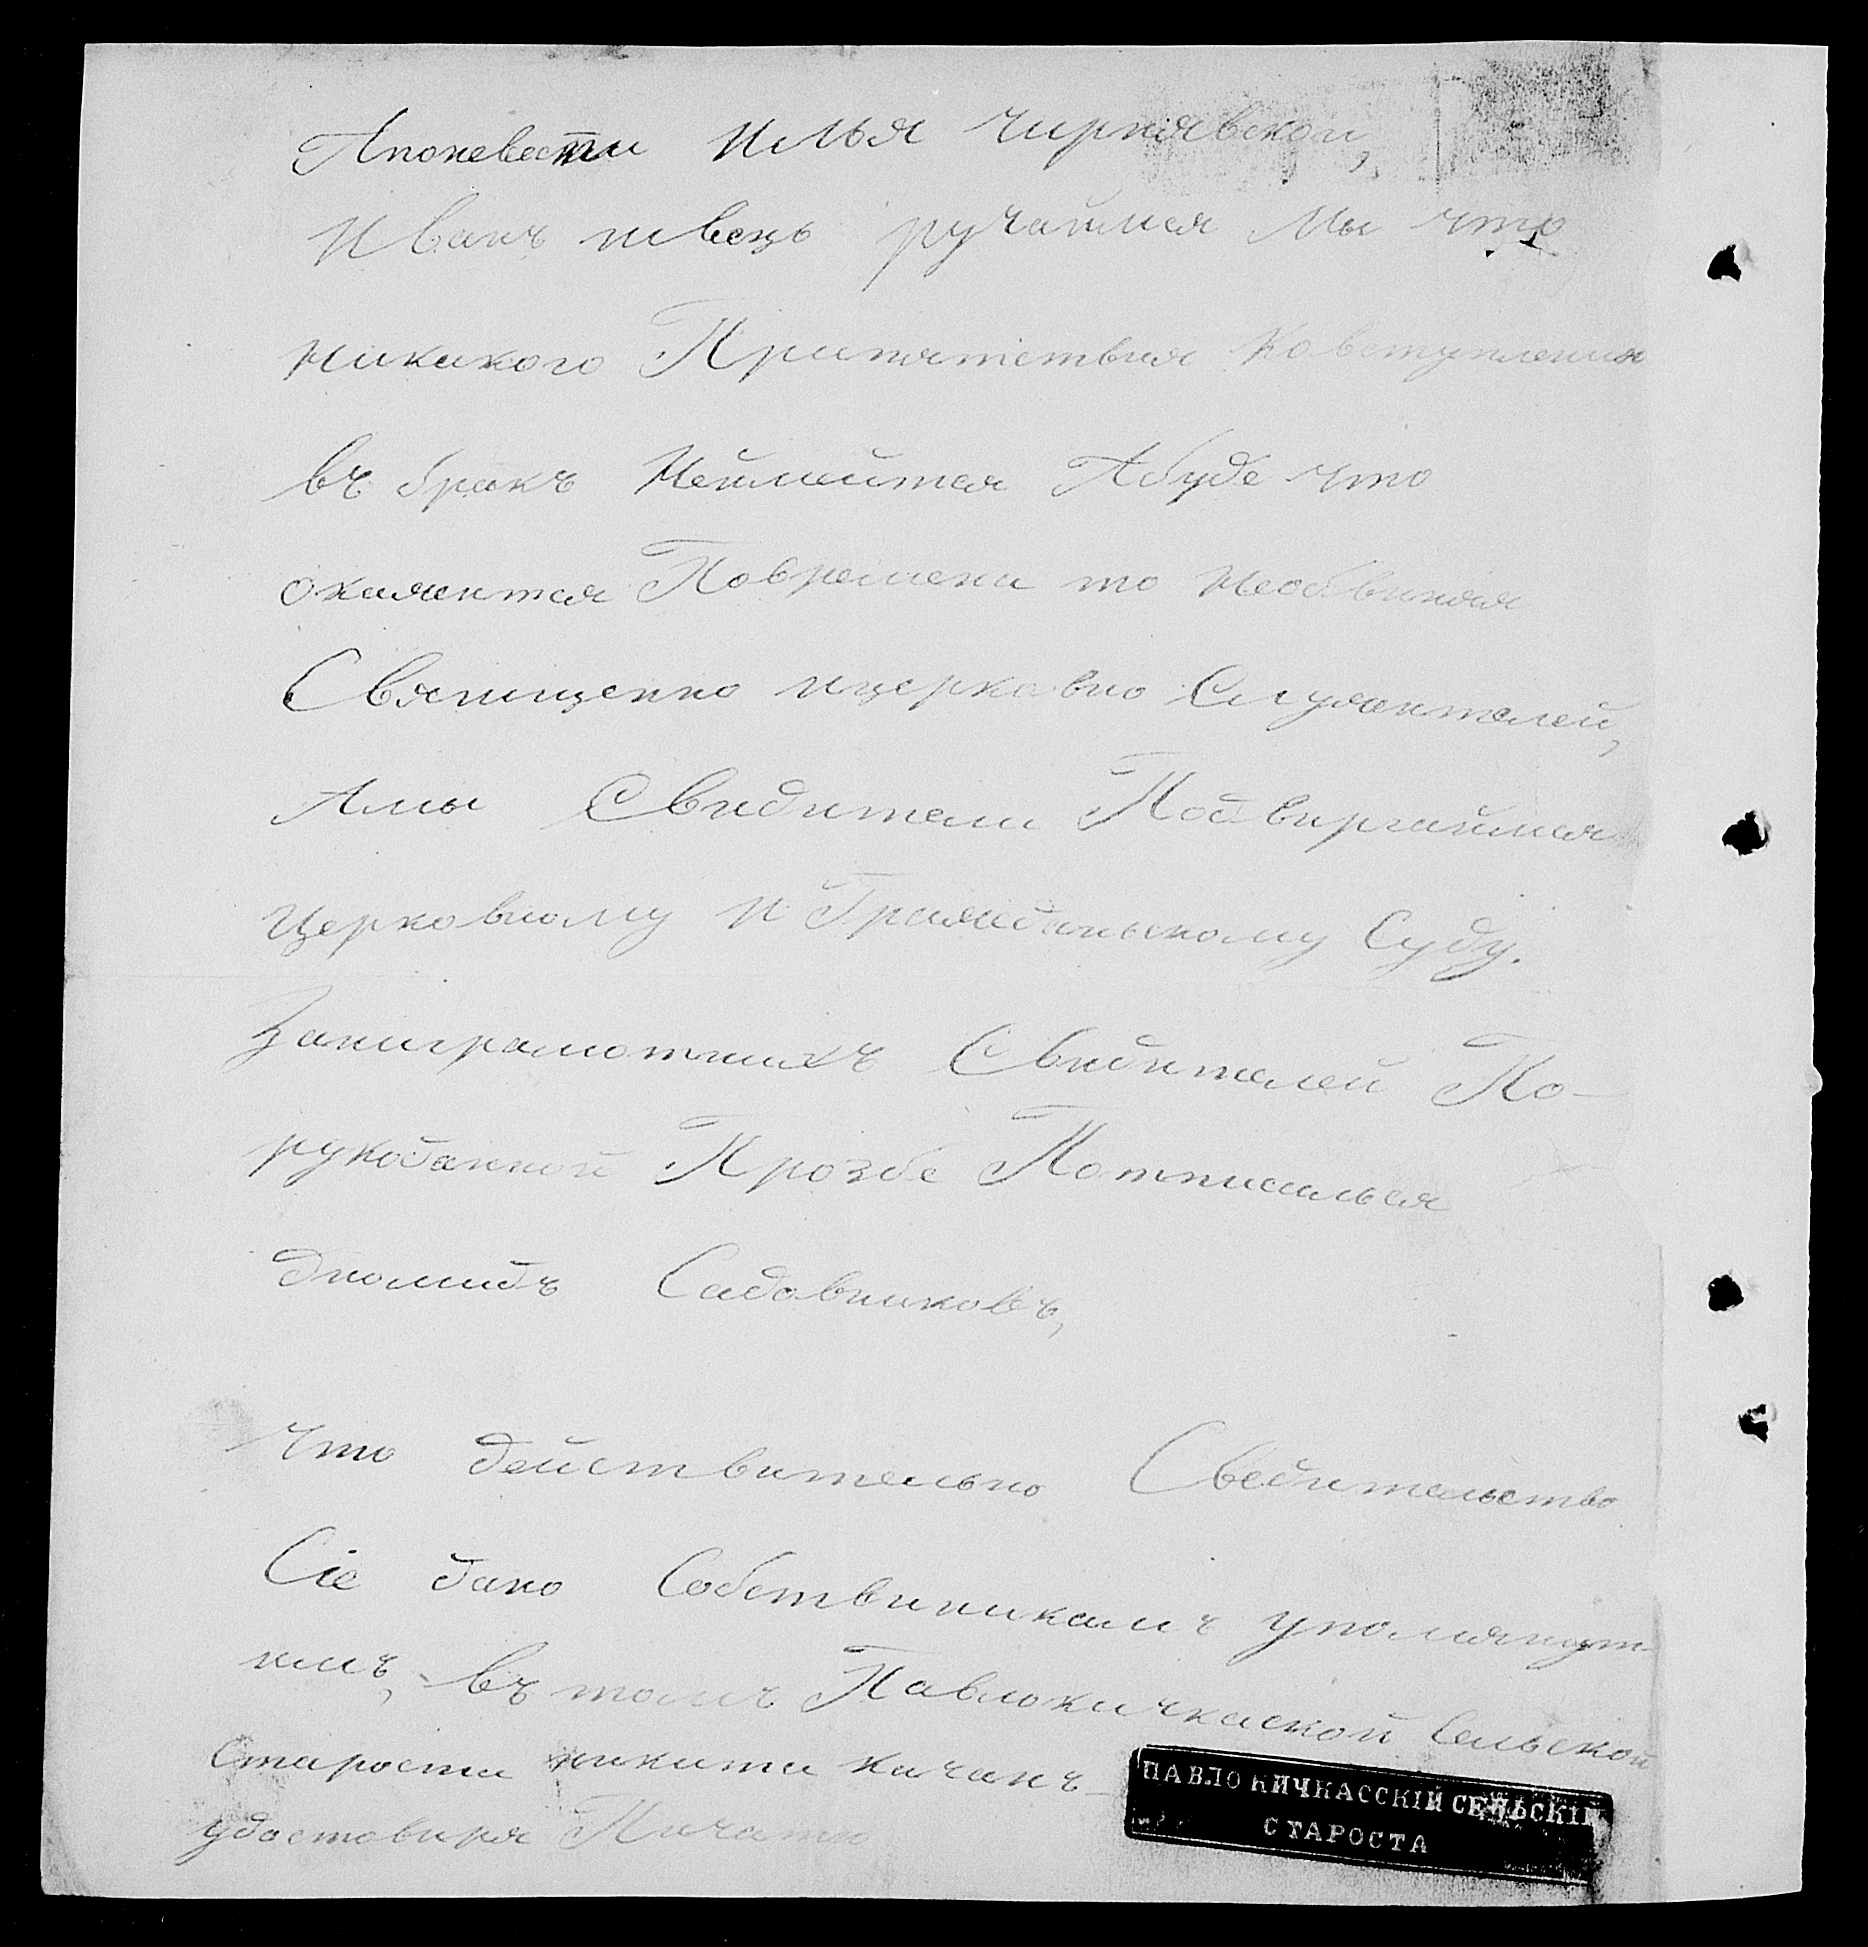 Апоневести Илья Чирнявской,
Иванъ швець ручаимся Мы что
Никакого Припятствия Ковступлению
въ бракъ Неймеится Абуде что
окажится Повремени то Необвиняя
Священно ицерковно Служителей,
Амы Свидители Подвиргаимся
Церковному И Гражданьскому Суду.
Заниграмотныхъ Свидителей По-
рукоданной Прозбе Потписалься
Диомидъ Садовниковъ,
Что действительно Сведительство
Сіе дано Собствиникамъ упомянут-
имъ, въ томъ Павлокичкаской Сельской
Старости никита качанъ
удостовиря Пичатю
ПАВЛО КИЧКАССКІЙ СЕЛЬСКІЙ
СТАРОСТА